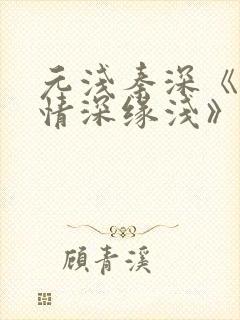 元浅秦深《
情深缘浅》
顾青溪